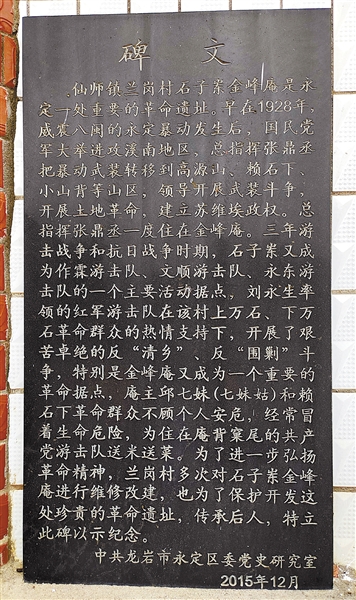 碑 文
仙师镇兰岗村石子岽金峰庵是永
定一处重要的革命遗址。早在1928年，
威震八闽的永定暴动发生后，国民党
军大举进攻溪南地区，总指挥张鼎丞
把暴动武装转移到高源山、赖石下、
小山背等山区，领导开展武装斗争，
开展土地革命，建立苏维埃政权。总
指挥张鼎丞一度住在金峰庵。三年游
击战争和抗日战争时期，石子岽又成
为作霖游击队、文顺游击队、永东游
击队的一个主要活动据点，刘永生率
领的红军游击队在该村上万石、下万
石革命群众的热情支持下，开展了艰
苦卓绝的反“清乡”、反“围剿”斗
争，特别是金峰庵又成为一个重要的
革命据点，庵主邱七妹(七妹姑)和赖
石下革命群众不顾个人安危，经常冒
着生命危险，为住在庵背窠尾的共产
党游击队送米送菜。为了进一步弘扬
革命精神，兰岗村多次对石子岽金峰
庵进行维修改建，也为了保护开发这
处珍贵的革命遗址，传承后人，特立
此碑以示纪念。
中共龙岩市永定区委党史研究室
2015年12月